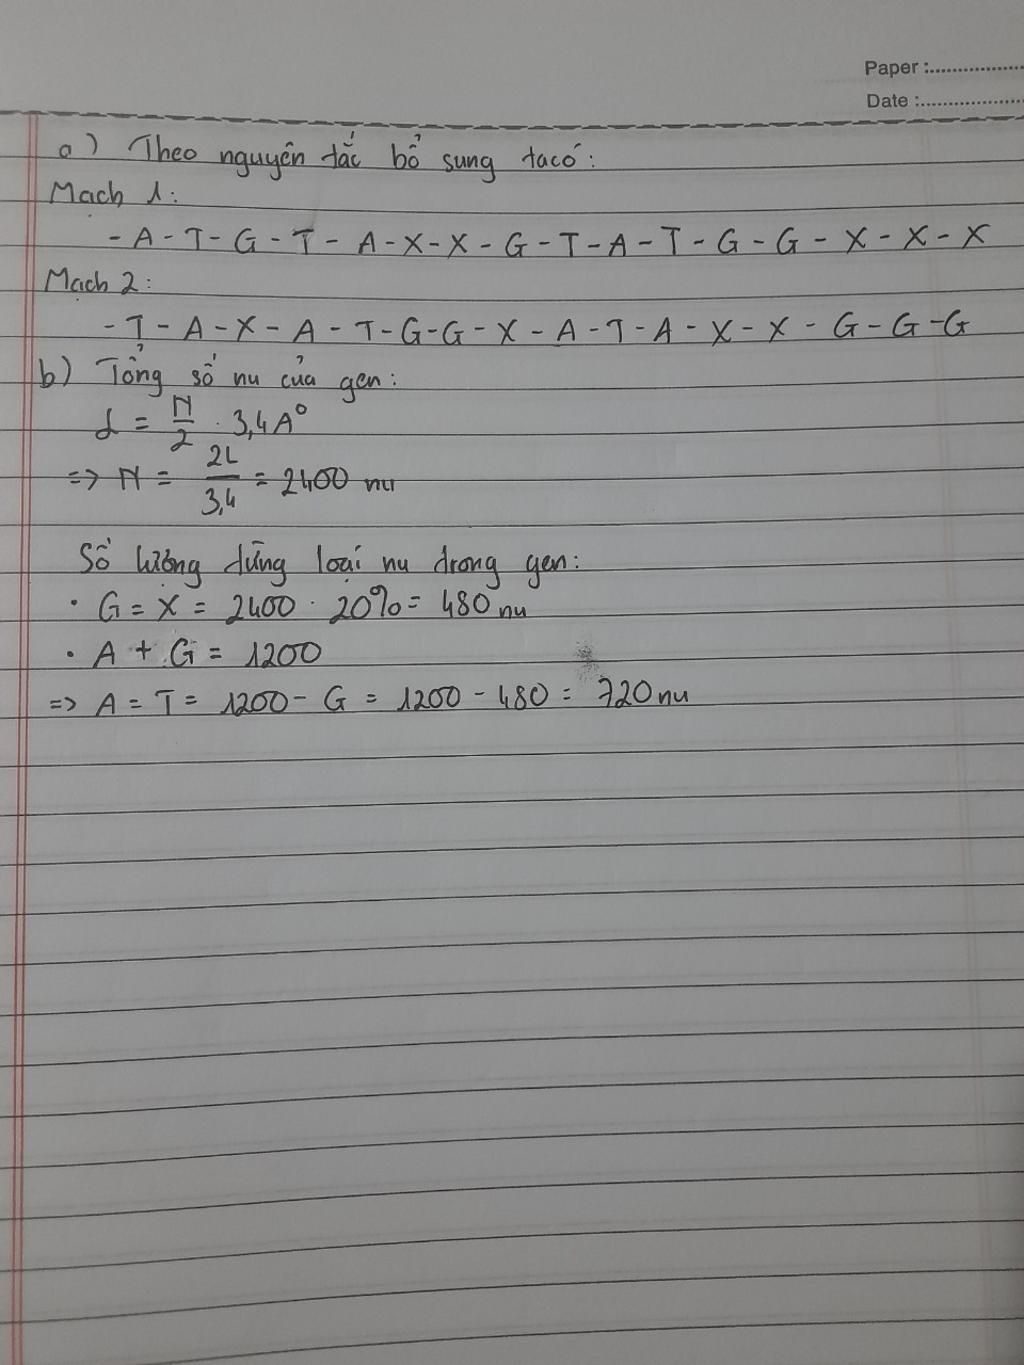 Paper :..................
Date :....................
a) Theo nguyên tắc bổ sung ta có:
Mạch 1:
- A - T - G - T - A - X - X - G - T - A - T - G - G - X - X - X
Mạch 2:
- T - A - X - A - T - G - G - X - A - T - A - X - X - G - G - G
b) Tổng số nu của gen:
L = N/2 . 3,4A°
=> N = 2L/3,4 = 2400 nu
Số lượng từng loại nu trong gen:
• G = X = 2400 . 20% = 480 nu
• A + G = 1200
=> A = T = 1200 - G = 1200 - 480 = 720 nu